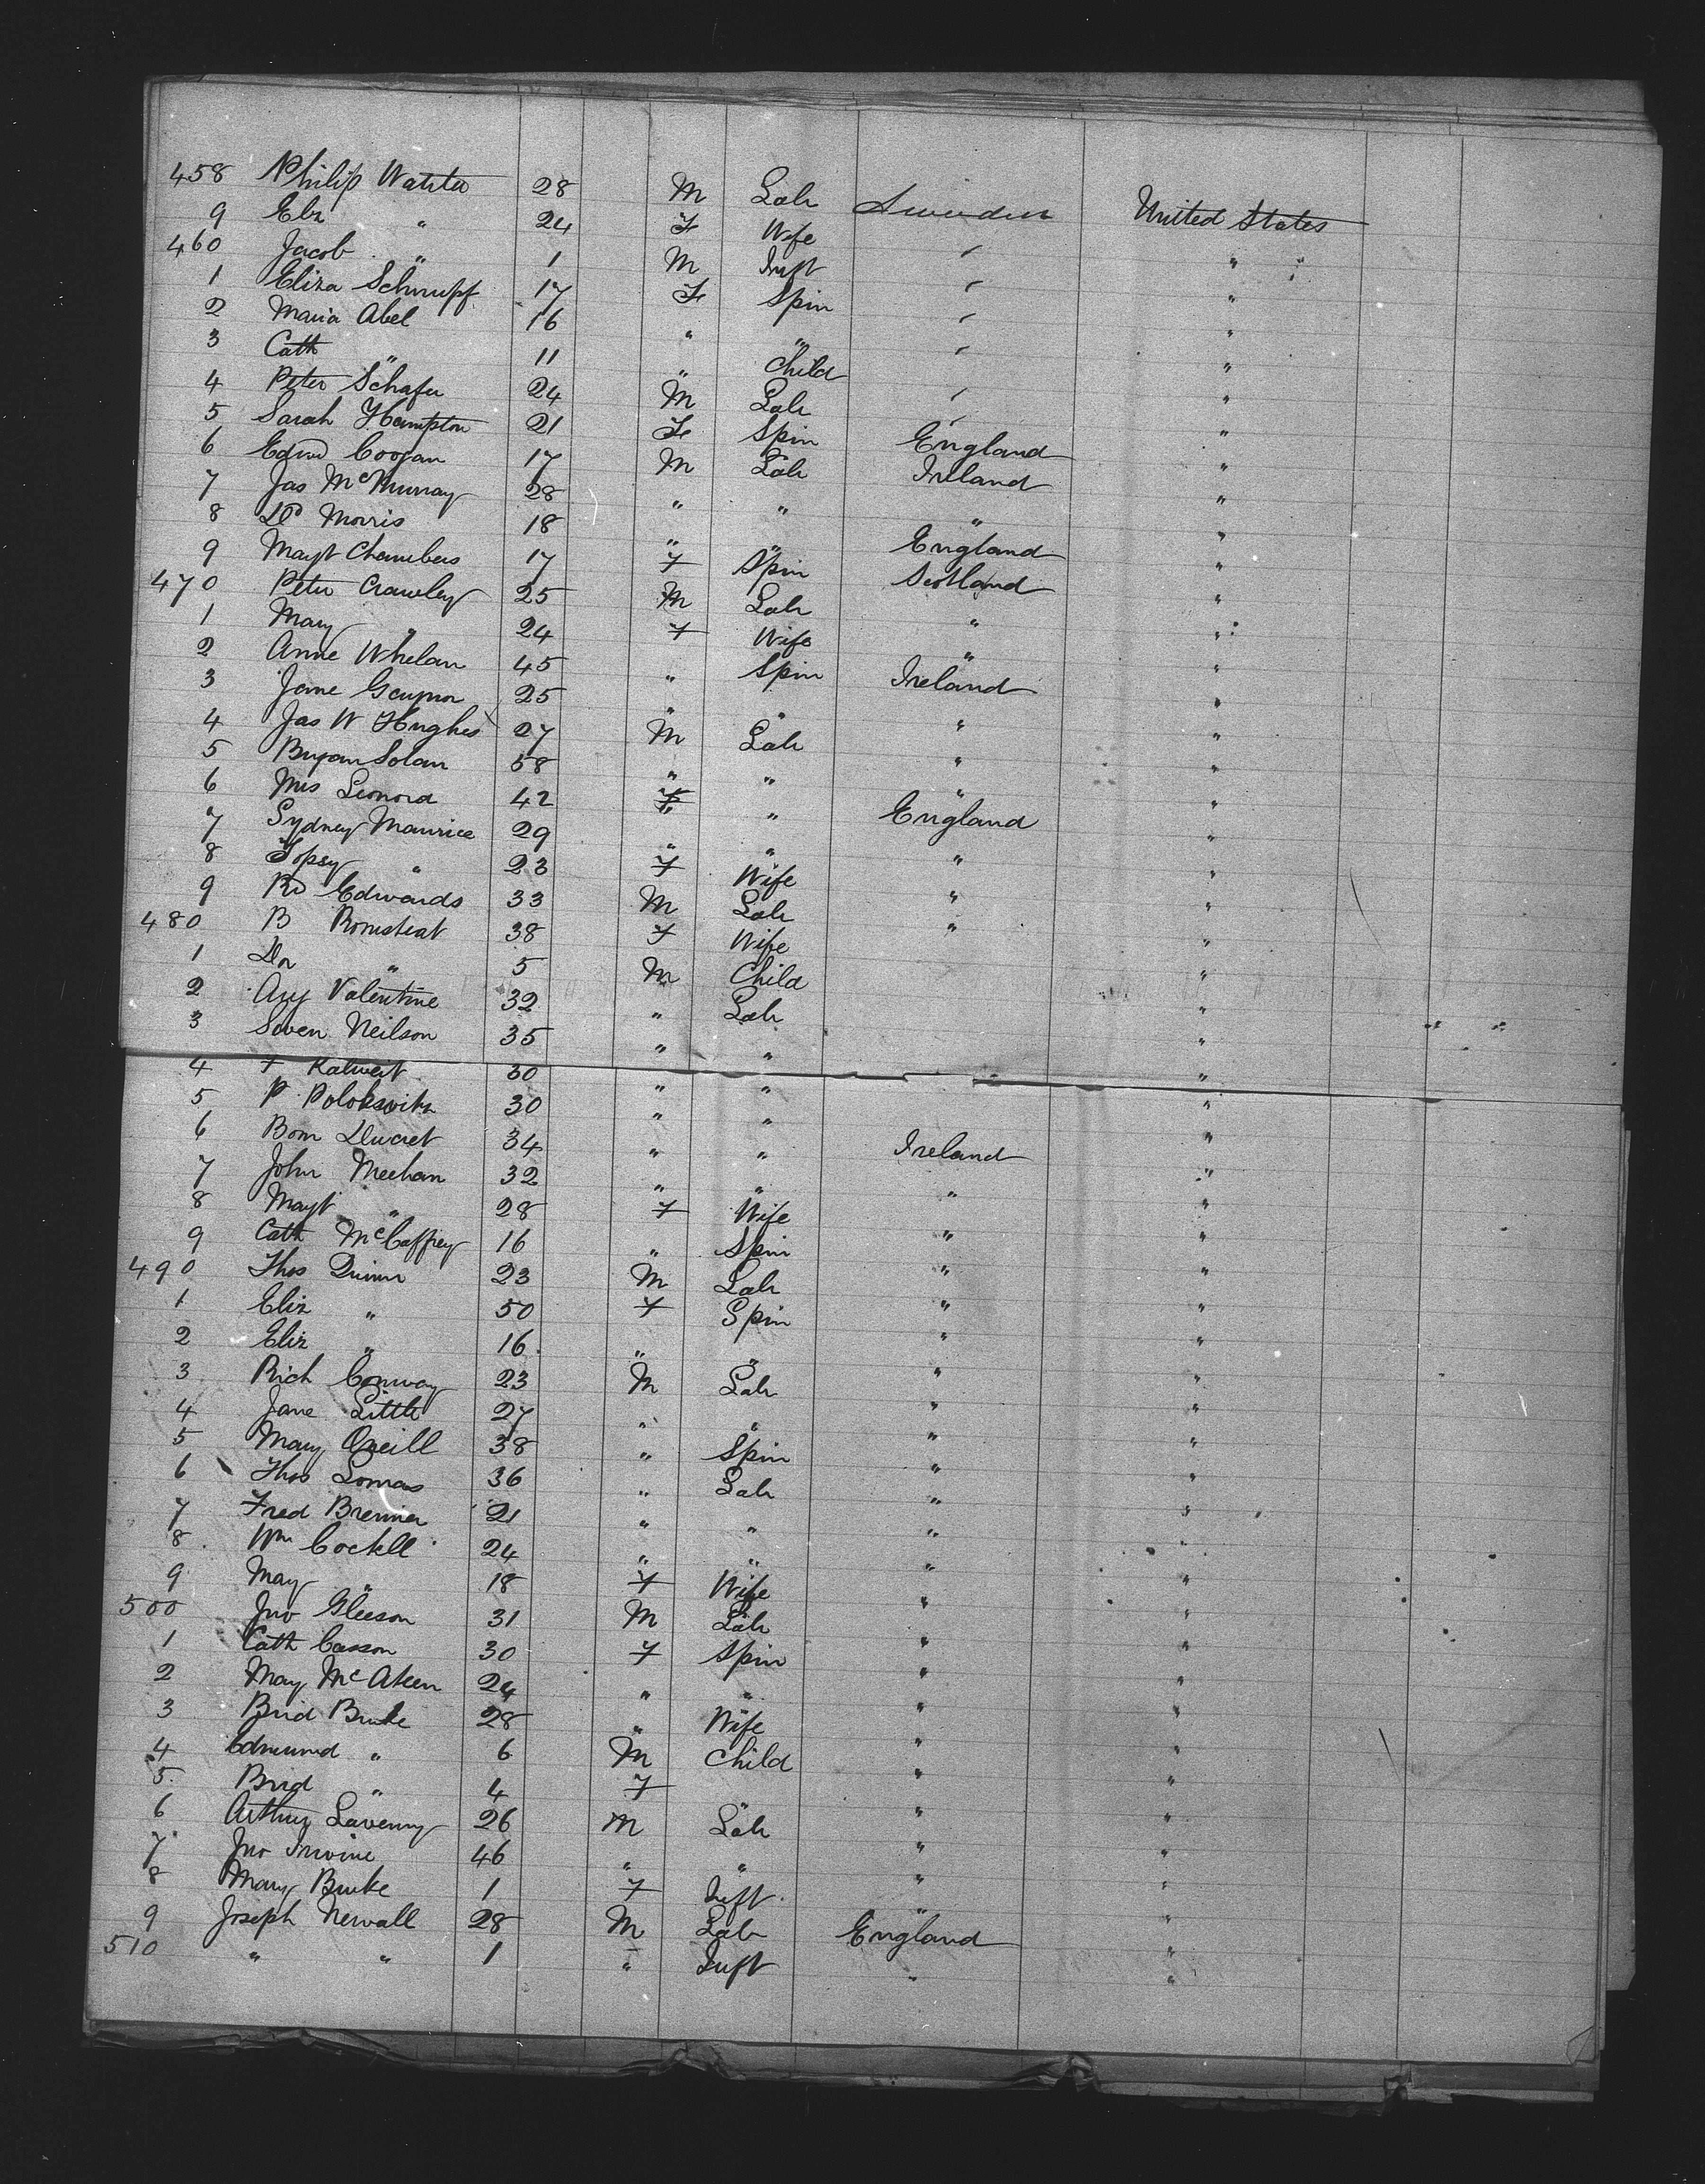 458 Philip 28 M Lab Sweden United States
9 Eliz " 24 F Wife " "
460 Jacob " 1 M Inft " "
1 Eliza Schrupf 17 F Spin " "
2 Maria Abel 16 " " " "
3 Cath " 11 " Child " "
4 Peter Schafer 24 M Lab " "
5 Sarah Hampton 21 F Spin England "
6 Edwd Coogan 17 M Lab Ireland "
7 Jas McMurray 28 " " " "
8 Morris 18 " " England "
9 Magt Chambers 17 F Spin Scotland "
470 Peter Crawley 25 M Lab " "
1 Mary " 24 F Wife " "
2 Anne Whelan 45 " Spin Ireland "
3 Jane Gaynor 25 " " " "
4 Jas W Hughes 27 M Lab " "
5 Bryan Solan 58 " " " "
6 Mrs Leonord 42 F " England "
7 Sydney Maurice 29 " " " "
8 Topsy " 23 F Wife " "
9 Rd Edwards 33 M Lab " "
480 B 38 F Wife "
1 " 5 M Child "
2 Valentine 32 " Lab "
3 Seven Neilson 35 " " "
4 F Kalweit 30 " " "
5 P Poloksvitz 30 " " "
6 Bom 34 " " Ireland "
7 John Meehan 32 " " " "
8 Magt " 28 F Wife " "
9 Cath McCaffrey 16 " Spin " "
490 Thos Quinn 23 M Lab " "
1 Eliz " 50 F Spin " "
2 Eliz " 16 " " " "
3 Rich Conway 23 M Lab " "
4 Jane Little 27 " " " "
5 Mary Oneill 38 " Spin " "
6 Thos Lomas 36 " Lab " "
7 Fred Brenner 21 " " " "
8 Wm Cockell 24 " " " "
9 May " 18 F Wife " "
500 Jno Gleeson 31 M Lab " "
1 Cath Casson 30 F Spin " "
2 May McAteer 24 " " " "
3 Brid Burke 28 " Wife " "
4 Edmund " 6 M Child " "
5 Brid " 4 F " " "
6 Arthur Lavenny 26 M Lab " "
7 Jno Irvine 46 " " " "
8 Mary Burke 1 F Inft " "
9 Joseph Newall 28 M Lab England "
510 " " 1 " Inft " "